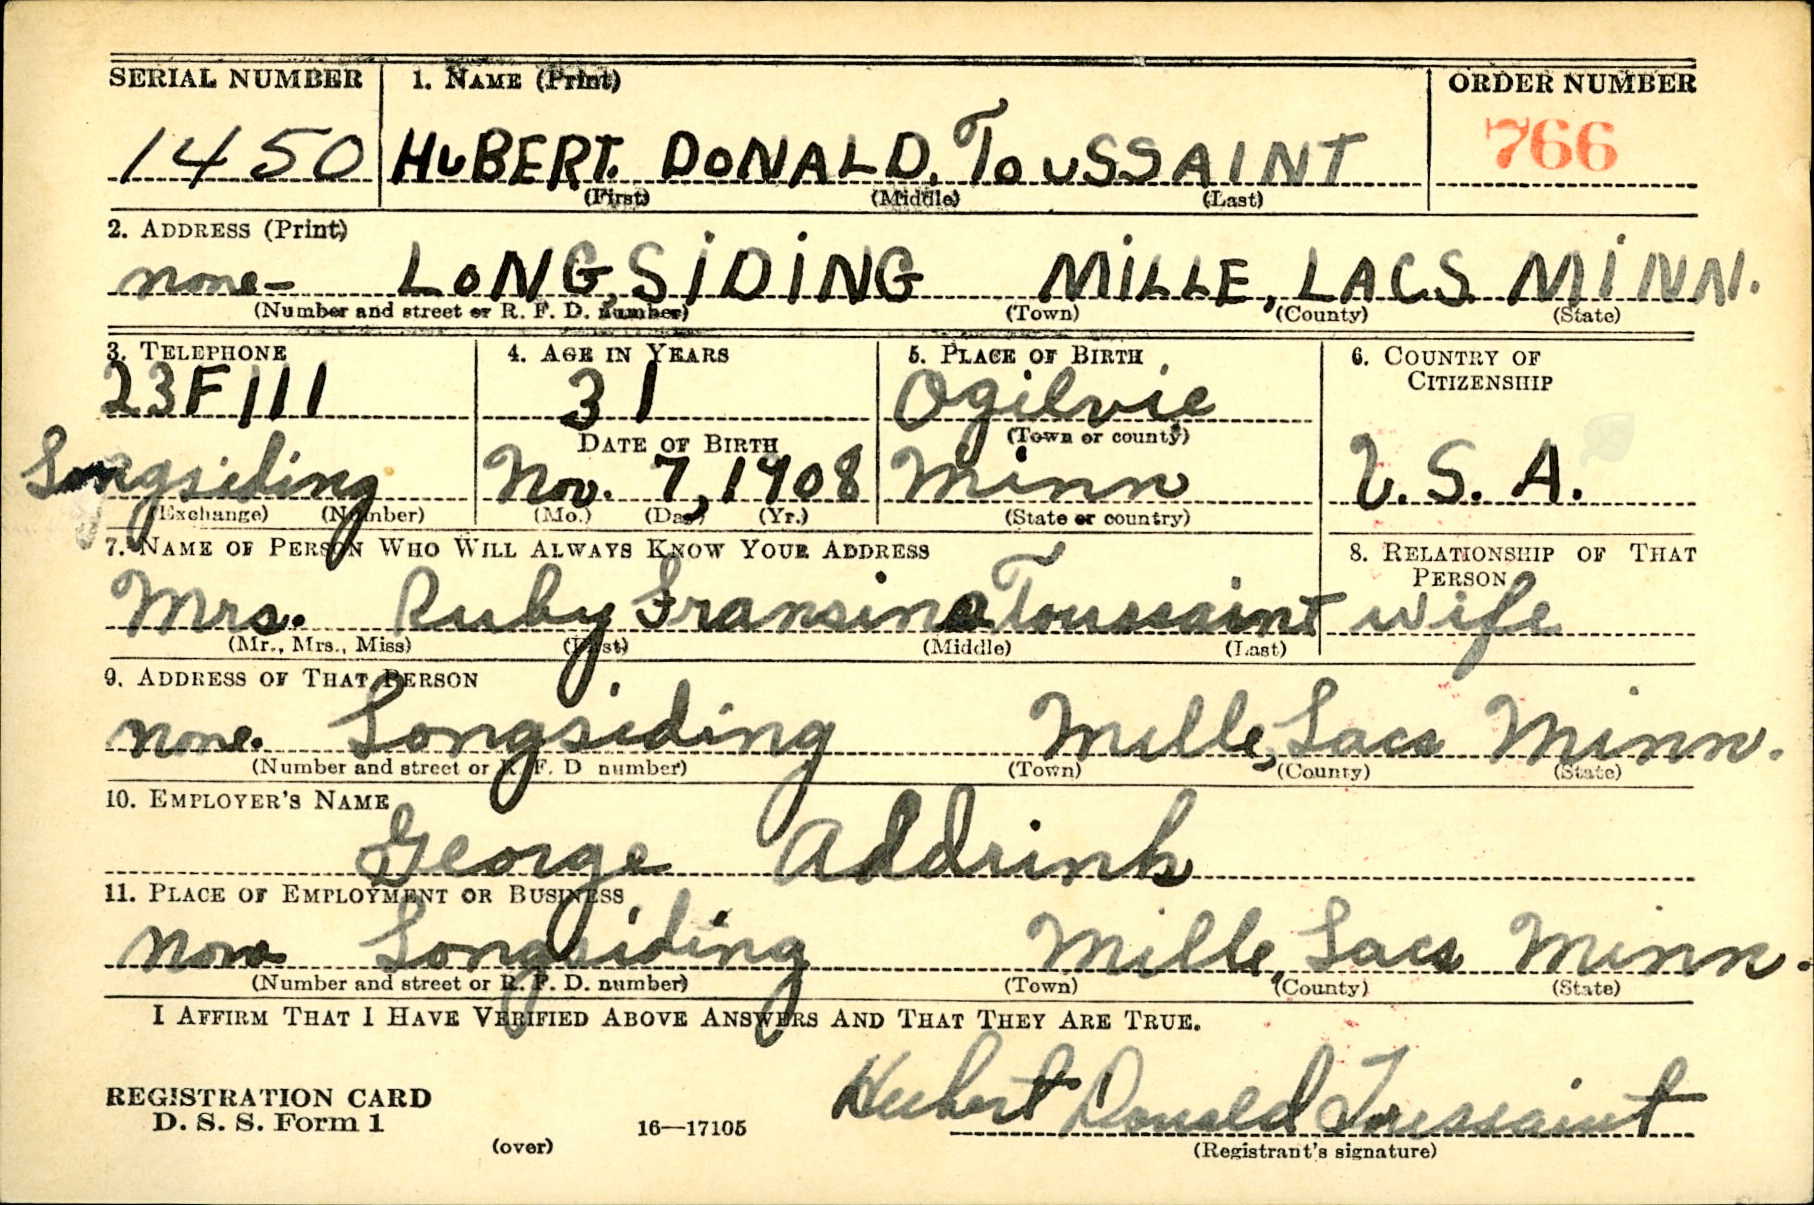 SERIAL NUMBER 1. NAME (Print) ORDER NUMBER
1450 HUBERT. DONALD. TOUSSAINT 766
(First) (Middle) (Last)
2. ADDRESS (Print)
none- LONGSIDING MILLE, LACS MINN.
(Number and street or R. F. D. number) (Town) (County) (State)
3. TELEPHONE 4. AGE IN YEARS 5. PLACE OF BIRTH 6. COUNTRY OF CITIZENSHIP
23F111 31 Ogilvie
DATE OF BIRTH (Town or county)
Longsiding Nov. 7, 1908 Minn U.S.A.
(Exchange) (Number) (Mo.) (Day) (Yr.) (State or country)
7. NAME OF PERSON WHO WILL ALWAYS KNOW YOUR ADDRESS 8. RELATIONSHIP OF THAT PERSON
Mrs. Ruby Fransina Toussaint wife
(Mr., Mrs., Miss) (First) (Middle) (Last)
9. ADDRESS OF THAT PERSON
none. Longsiding Mille, Lacs Minn.
(Number and street or R. F. D number) (Town) (County) (State)
10. EMPLOYER'S NAME
George Addrink
11. PLACE OF EMPLOYMENT OR BUSINESS
None Longsiding Mille, Lacs Minn.
(Number and street or R. F. D. number) (Town) (County) (State)
I AFFIRM THAT I HAVE VERIFIED ABOVE ANSWERS AND THAT THEY ARE TRUE.
Hubert Donald Toussaint
REGISTRATION CARD
D. S. S. Form 1
(over) 16—17105 (Registrant's signature)